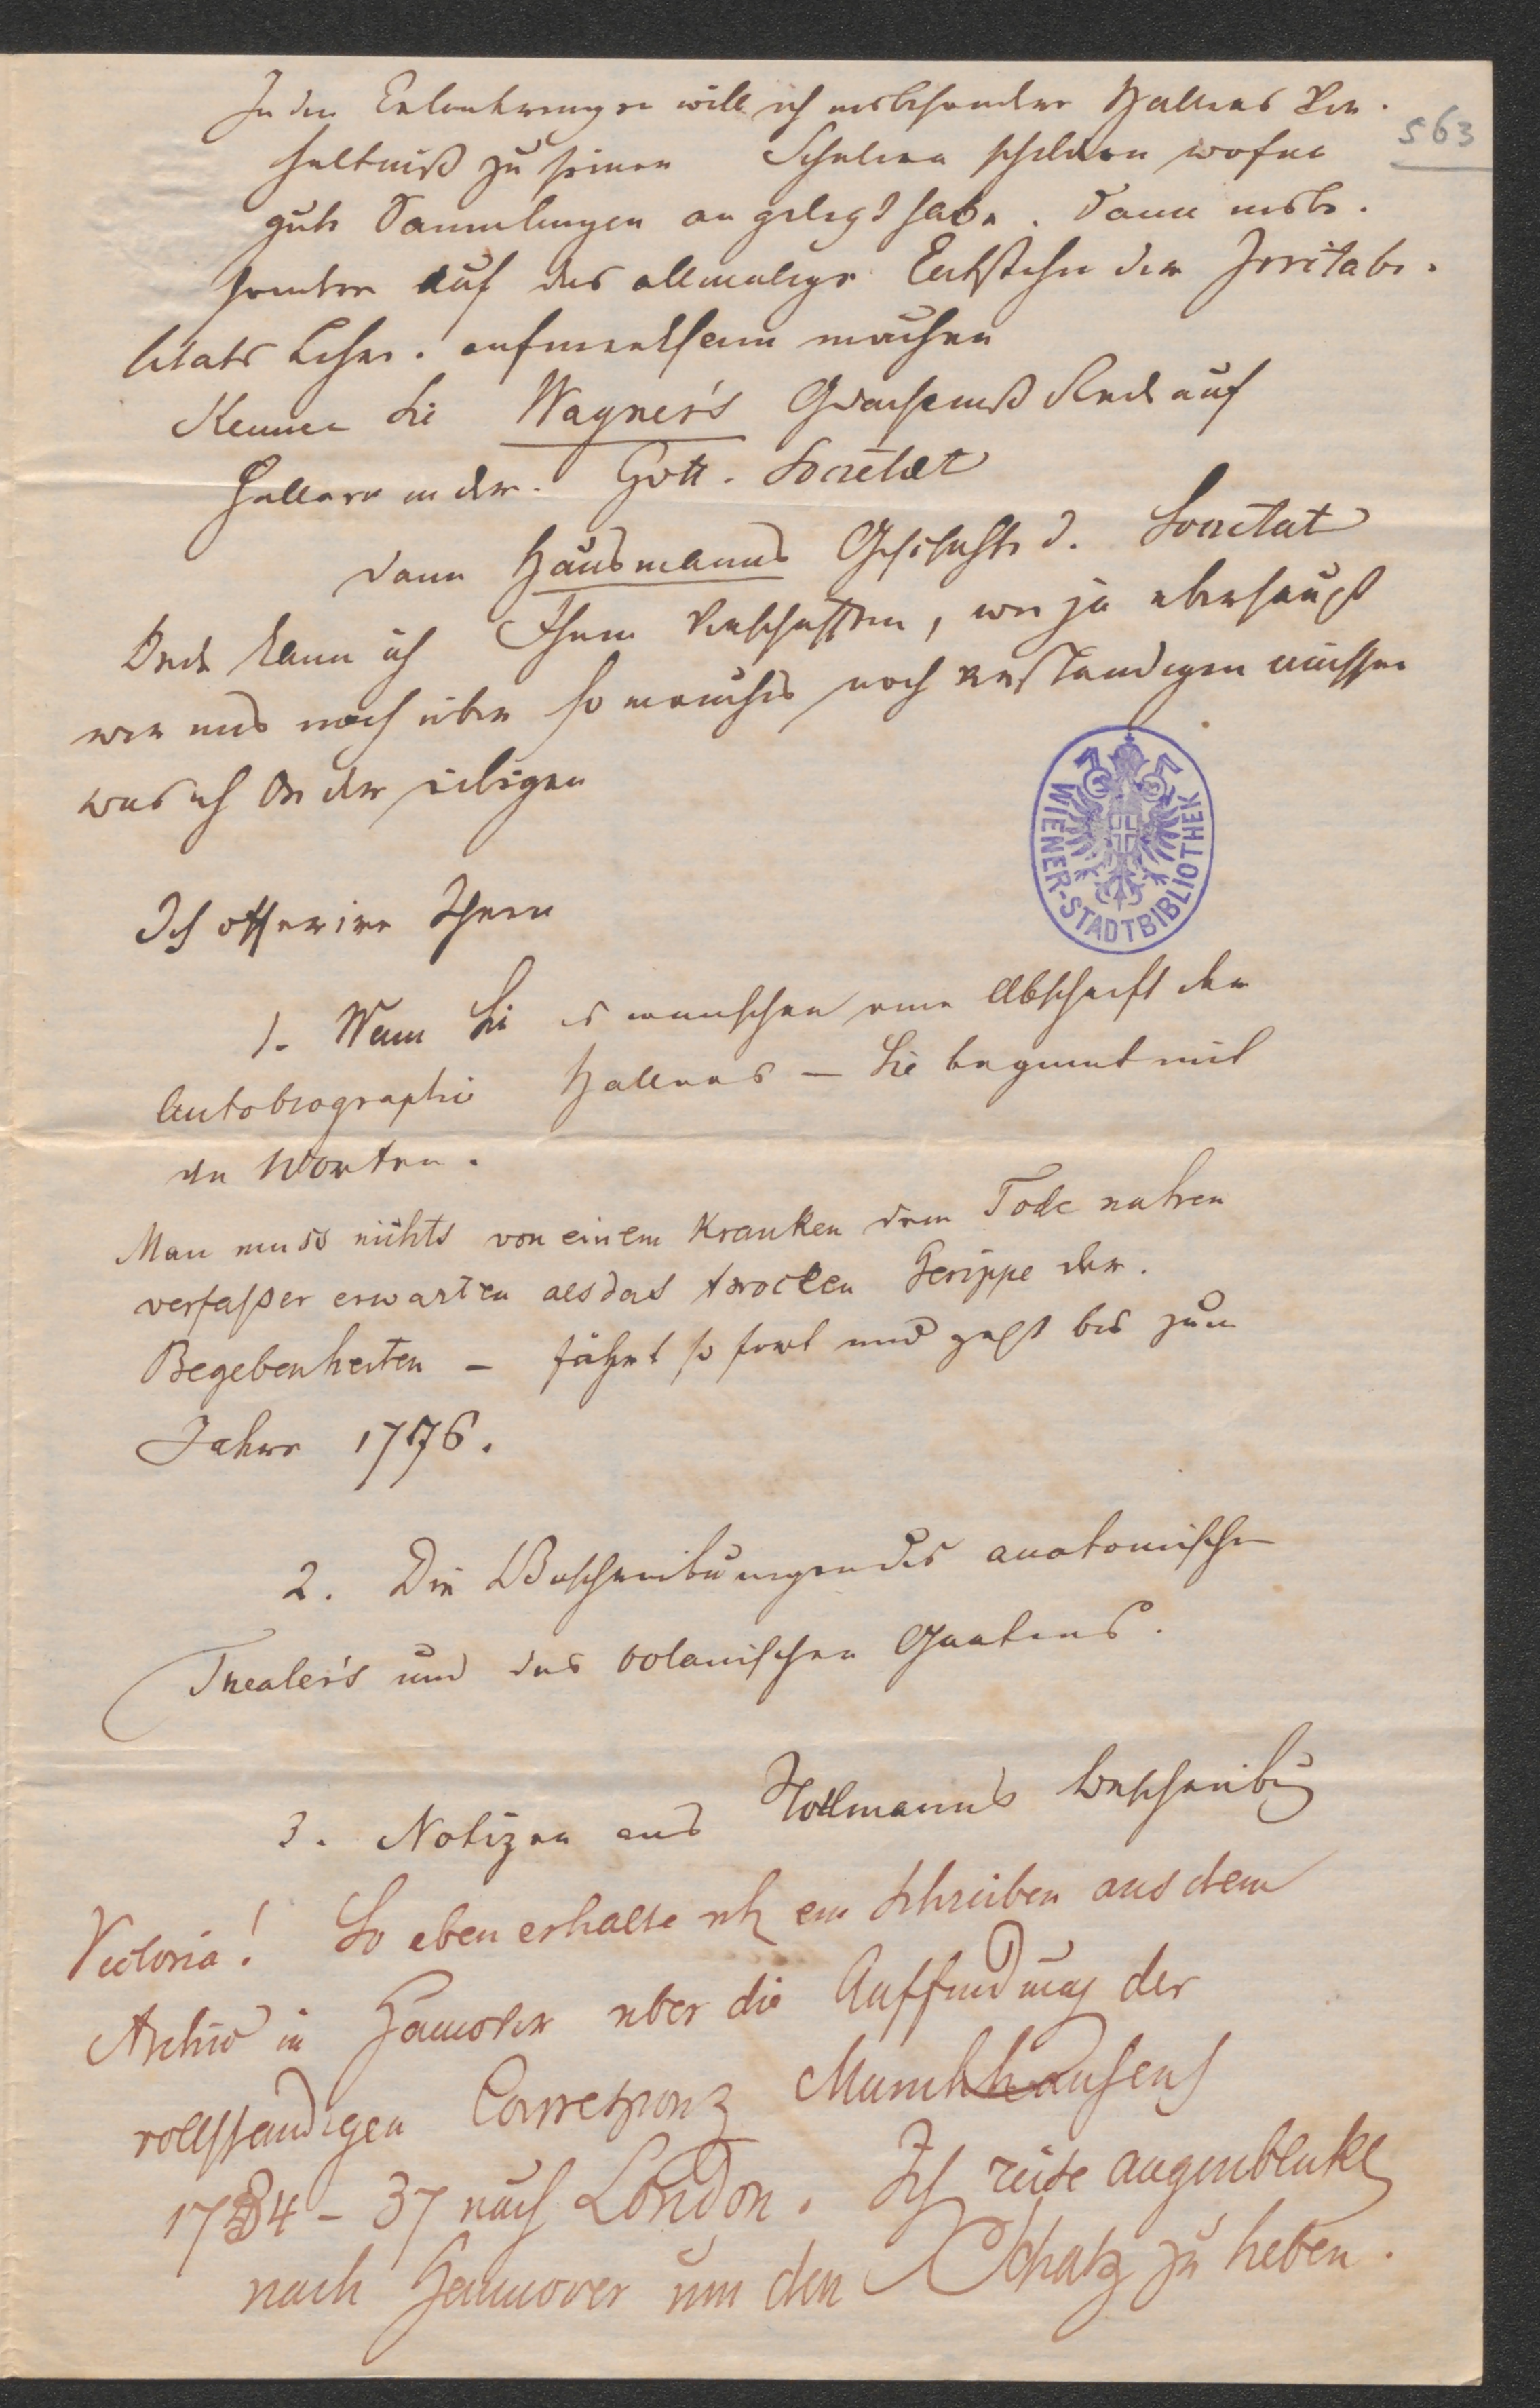 In den Erlauterungen will ich insbesondere Hallers Ver-
haltniß zu seinen Schulern schildern wofur
gute Sammlungen angelegt habe. Dann insbe-
sondere auf das allmalige Entstehn der Irritabi-
litats Lehre. aufmerksam machen
Kennen Sie Wagner's Gedachtniß Rede auf
Hallern in der. Gott. Societæt
Dann Hausmanns Geschichte d. Societat
Beide kann ich Ihnen verschaffen, wie ja uberhaupt
wir uns noch über so manches noch verstandigen müssen
was ich
563
WIENER-STADTBIBLIOTHEK
Ich offerire Ihnen
1. Wenn Sie es wunschen eine Abschrift der
Autobiographie Hallers — Sie beginnt mit
den Worten.
Man muss nichts von einem Kranken dem Tode nahen
verfaßer erwarten als das trocken Gerippe der.
Begebenheiten — fährt so fort und geht bis zum
Jahre 1776.
2. Die Beschreibungen des anatomischen
Theater's und des botanischen Gartens.
3. Notizen aus Hollmanns Beschreibung
Victoria! So eben erhalte ich ein Schreiben aus dem
Archiv in Hannover uber die Auffindung der
vollstandigen Corresponz Munchhausens
1734 - 37 nach London. Ich reise augenblickl
nach Hannover um den Schatz zu heben.